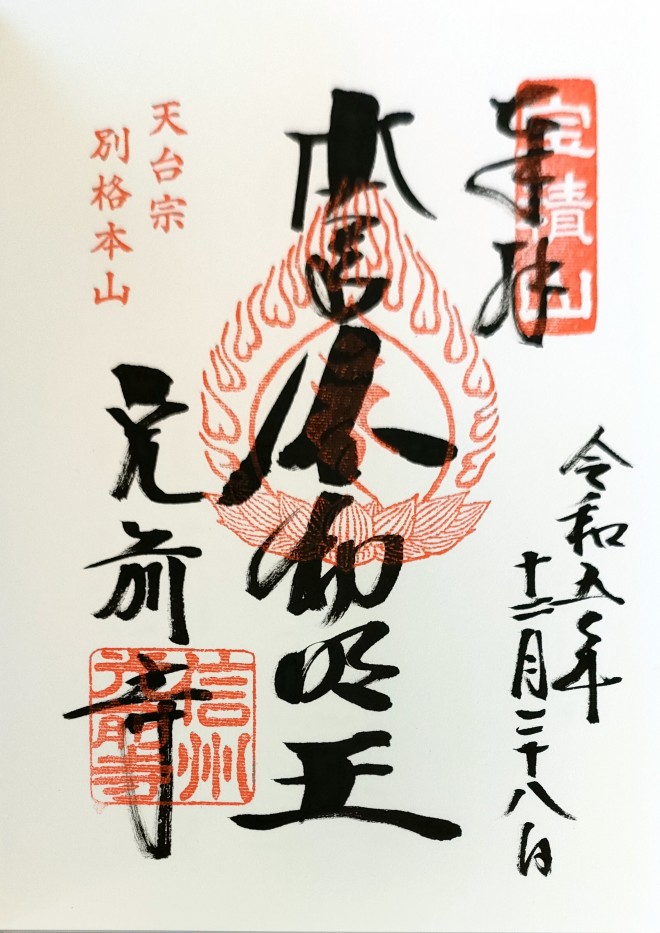 奉拝
宝積山
令和五年
十二月二十八日
本尊不動明王
天台宗
別格本山
光前寺
信州
光前寺